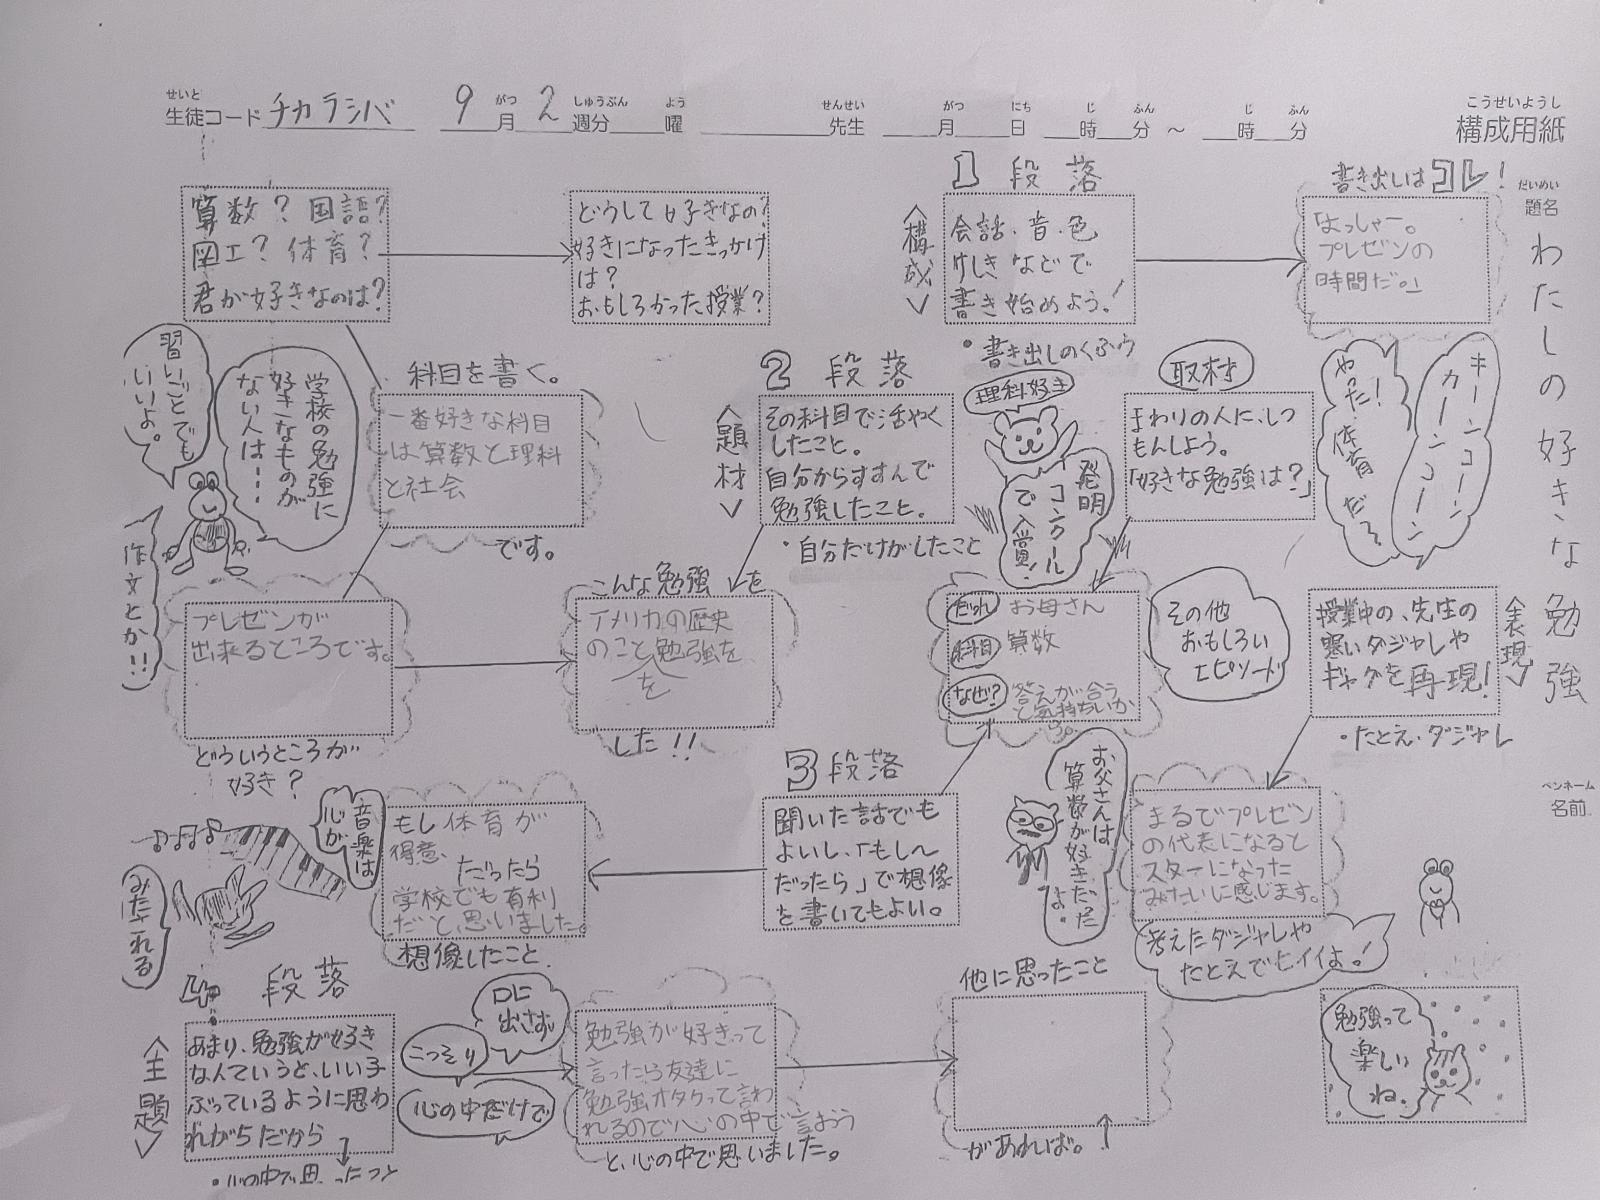 せいと
生徒コード チカラシバ 9月 2週分 曜 先生 月 日 時 分 ～ 時 分
がつ しゅうぶん よう せんせい がつ にち じ ふん じ ふん
こうせいようし
構成用紙
だいめい
題名
わたしの好きな勉強
ペンネーム
名前
1段落
<構成>
会話・音・色
けしきなどで
書き始めよう!
・書き出しのくふう
書き出しはコレ!
「よっしゃー。
プレゼンの
時間だ。」
キーンコーン
カーンコーン
やった!
体育だぞ
算数?国語?
図工?体育?
君が好きなのは?
どうして好きなの?
好きになったきっかけ
は?
おもしろかった授業?
科目を書く。
一番好きな科目
は算数と理科
と社会
です。
学校の勉強に
好きなものが
ない人は・・・
習いごとでも
いいよ。
作文とか!!
プレゼンが
出来るところです。
どういうところが
好き?
2段落
<題材>
その科目で活やく
したこと。
自分からすすんで
勉強したこと。
・自分だけがしたこと
こんな勉強を
アメリカの歴史
のこと勉強を
を
した!!
理科好き
発明
コンクール
で入賞!
取材
まわりの人に、しつ
もんしよう。
「好きな勉強は?」
だれ お母さん
科目 算数
なぜ? 答えが合う
と気持ちいいか
ら。
その他
おもしろい
エピソード
<表現>
授業中の、先生の
寒いダジャレや
ギャグを再現!
・たとえ・ダジャレ
まるでプレゼン
の代表になると
スターになった
みたいに感じます。
考えたダジャレや
たとえでヒイイよ!
お父さんは
算数が好きだった
よ。
3段落
聞いた話でも
よいし、「もし〜
だったら」で想像
を書いてもよい。
もし体育が
得意、
だったら
学校でも有利
だ、と思いました。
想像したこと
音楽は
心が
みだれる
4段落
<主題>
あまり、勉強が好き
なんていうと、いい子
ぶっているように思わ
れがちだから
・心の中で思ったこと
口に
出さず
こっそり
心の中だけで
勉強が好きって
言ったら友達に
勉強オタクって言わ
れるので心の中で言おう
と、心の中で思いました。
他に思ったこと
があれば。
勉強って
楽しい
ね.